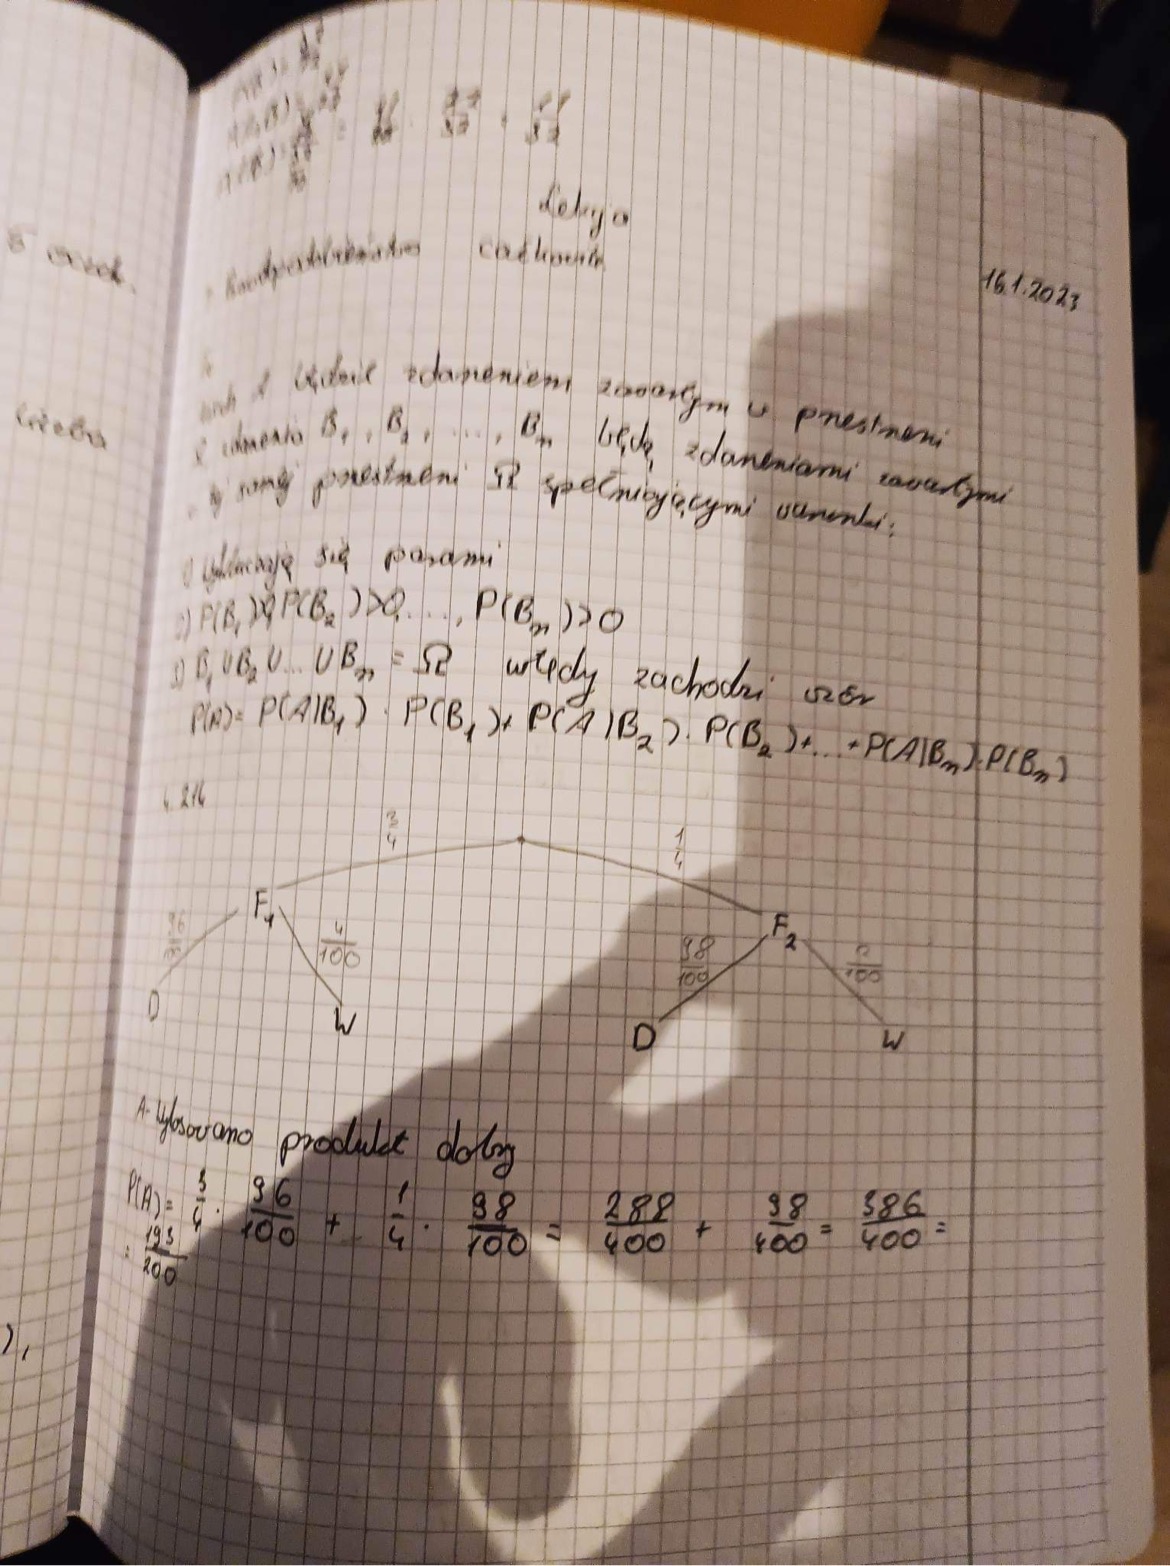 5 oczek.
Lekcja
Prawdopodobieństwo całkowite
16.1.2023
będzie zdarzeniem zawartym w przestrzeni
zdarzenia B₁, B₂, ..., Bₙ będą zdarzeniami zawartymi
tej samej przestrzeni Ω spełniającymi warunki:
1) wykluczają się parami
2) P(B₁)>0, P(B₂)>0, ..., P(Bₙ)>0
3) B₁∪B₂∪...∪Bₙ = Ω wtedy zachodzi wzór
P(A)= P(A|B₁) · P(B₁)+ P(A|B₂) · P(B₂)+...+P(A|Bₙ)·P(Bₙ)
3/4 1/4
F₁ F₂
96 4/100 98/100 2/100
D W D W
A- Wylosowano produkt dobry
P(A)= 3/4 · 96/100 + 1/4 · 98/100 = 288/400 + 98/400 = 386/400 =
= 193/200
),